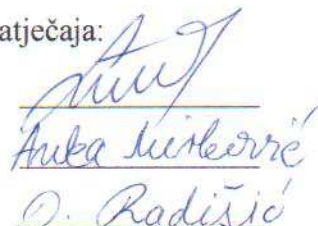 atječaja:
Anka Mirković
O. Radišić